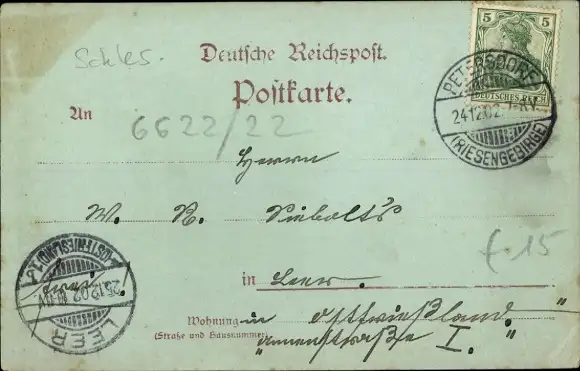 Schles.
Deutsche Reichspost.
Postkarte.
5 5
DEUTSCHES REICH
PETERSDORF
24.12.02.
(RIESENGEBIRGE)
An
6622/22
Herrn
W. R. Siebolts
f. 15
in Leer.
(OSTFRIESLAND)
26.12.02
LEER
Wohnung in Ostfrießland."
(Straße und Hausnummer)
"Annenstraße I."